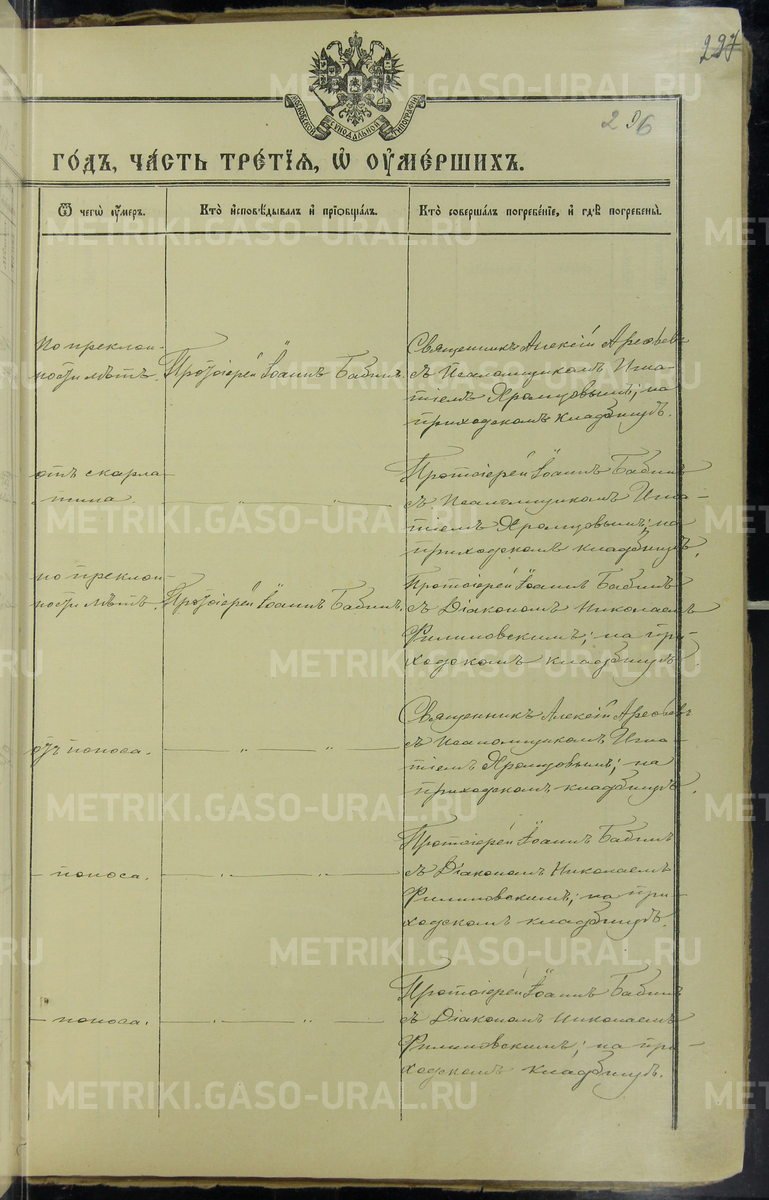 297
296
МОСКОВСКОЙ СУНОДАЛЬНОЙ ТИПОГРАФІИ
ГО́ДЪ, ЧА́СТЬ ТРЕ́ТІѦ, Ѡ҆ ОУ҆МЕ́РШИХЪ.
Ѿ чегѡ̀ оу҆́меръ.
Кто̀ и҆сповѣ́дывалъ и҆ прїѡбща́лъ.
Кто̀ соверша́лъ погребе́нїе, и҆ гдѣ̀ погребены̀.
По преклон-
ности лѣтъ.
Протоіерей Іоаннъ Бабинъ.
Священникъ Алексій Арефьевъ
съ Псаломщикомъ Игна-
тіемъ Яромцовымъ; на
приходскомъ кладбищѣ.
отъ скарла-
тина
— " — " —
Протоіерей Іоаннъ Бабинъ
съ Псаломщикомъ Игна-
тіемъ Яромцовымъ; на
приходскомъ кладбищѣ.
по преклон-
ности лѣтъ.
Протоіерей Іоаннъ Бабинъ.
Протоіерей Іоаннъ Бабинъ
съ Діакономъ Николаемъ
Филиповскимъ; на при-
ходскомъ кладбищѣ.
отъ поноса.
— " — " —
Священникъ Алексій Арефьевъ
съ Псаломщикомъ Игна-
тіемъ Яромцовымъ; на
приходскомъ кладбищѣ.
— поноса.
— " — " —
Протоіерей Іоаннъ Бабинъ
съ Діакономъ Николаемъ
Филиповскимъ; на при-
ходскомъ кладбищѣ.
— поноса.
— " — " —
Протоіерей Іоаннъ Бабинъ
съ Діакономъ Николаемъ
Филиповскимъ; на при-
ходскомъ кладбищѣ.
METRIKI.GASO-URAL.RU